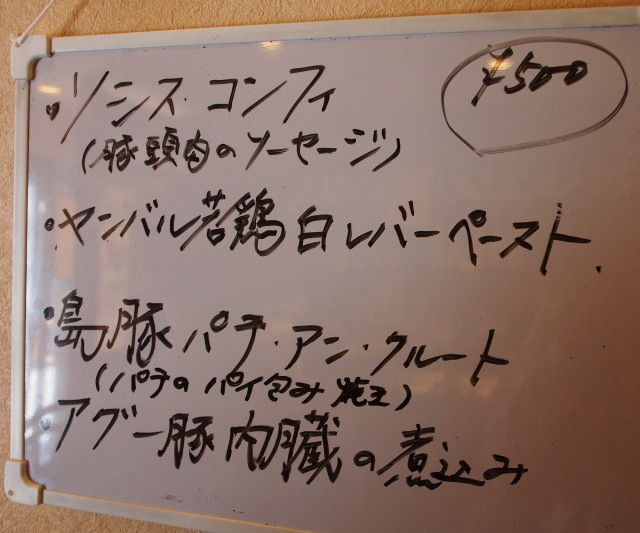 ¥500
・ソシス・コンフィ
(豚頭肉のソーセージ)
・ヤンバル若鶏白レバーペースト.
・島豚パテ・アン・クルート
(パテのパイ包み焼)
・アグー豚内臓の煮込み